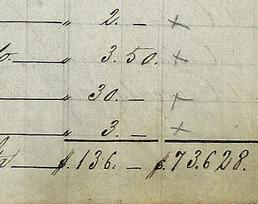 " 2. — +
" 3.50. +
" 30. — +
" 3. — +
$.136. — $.73.628.